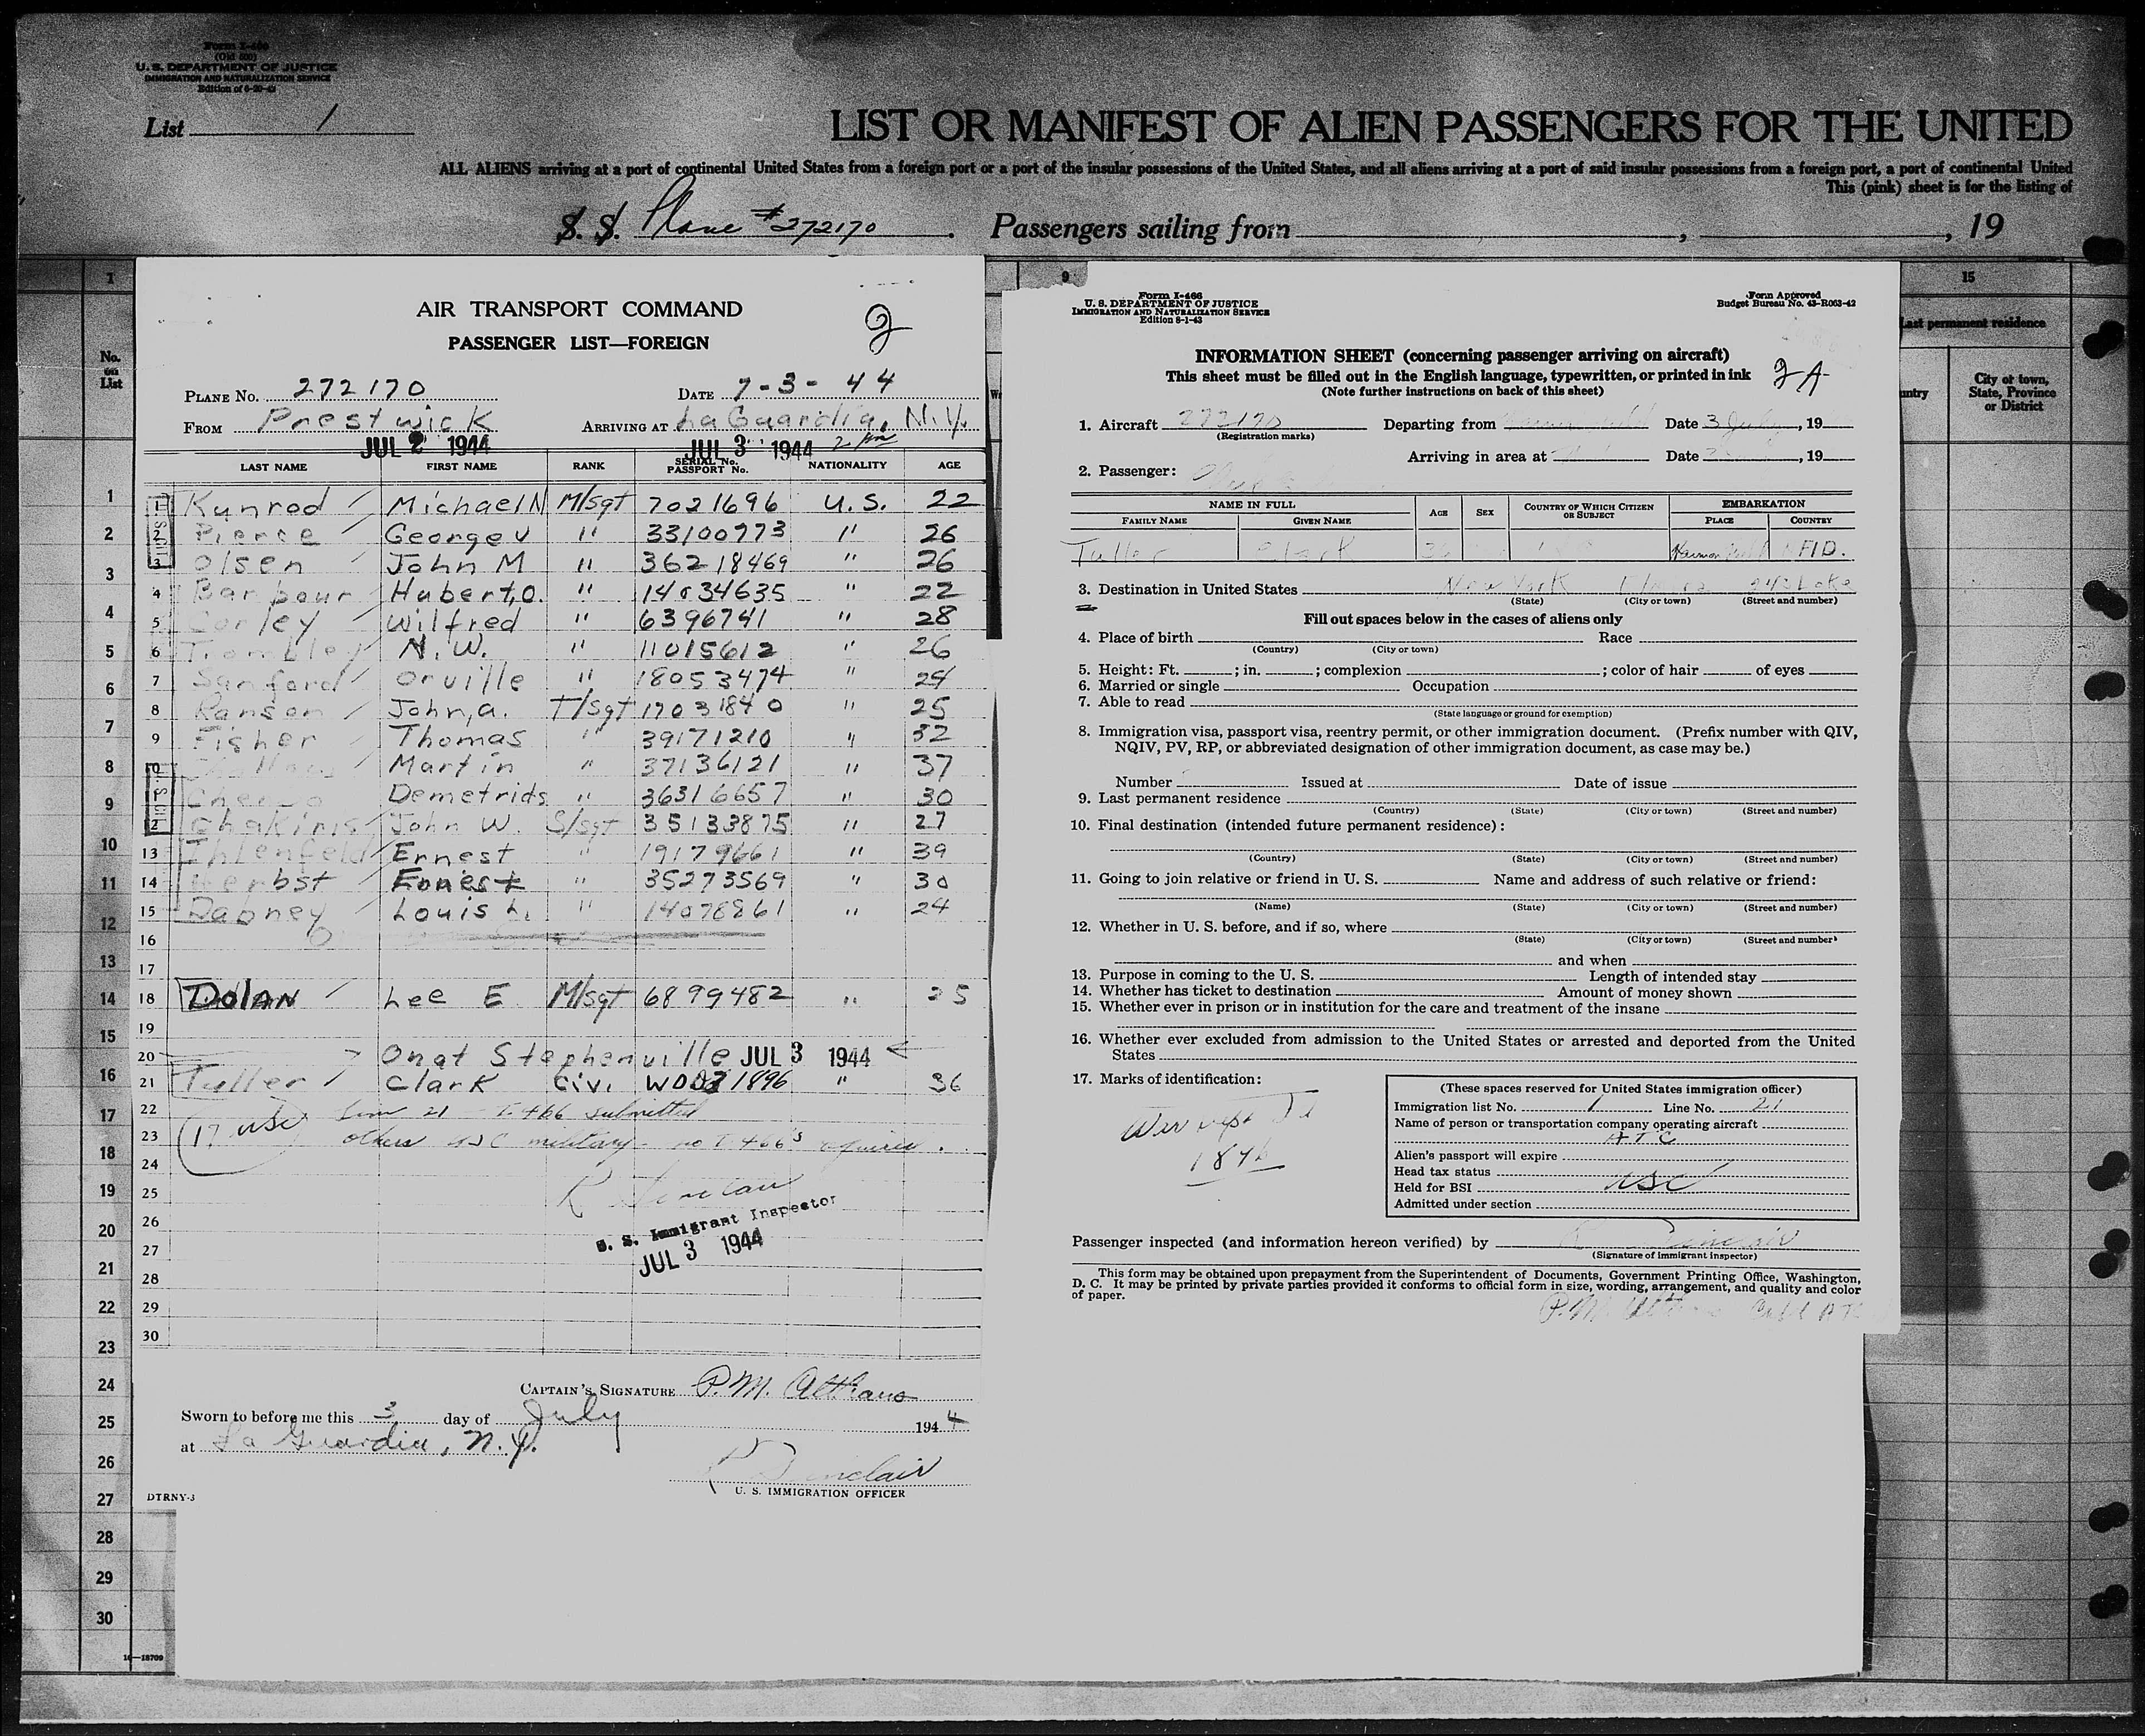 Form I-466
(Old 500)
U. S. DEPARTMENT OF JUSTICE
IMMIGRATION AND NATURALIZATION SERVICE
List 1
LIST OR MANIFEST OF ALIEN PASSENGERS FOR THE UNITED
ALL ALIENS arriving at a port of continental United States from a foreign port or a port of the insular possessions of the United States, and all aliens arriving at a port of said insular possessions from a foreign port, a port of continental United
This (pink) sheet is for the listing of
S. S. Plane #272170. Passengers sailing from , , 19
1 9 15
No. on List
Last permanent residence
City or town, State, Province or District
AIR TRANSPORT COMMAND 2
PASSENGER LIST—FOREIGN
PLANE No. 272170 DATE 7-3-44
FROM Prestwick ARRIVING AT La Guardia, N.Y.
JUL 2 1944 JUL 3 1944 2 pm
LAST NAME FIRST NAME RANK SERIAL No. PASSPORT No. NATIONALITY AGE
1 Kunrod Michael N M/sgt 7021696 U.S. 22
2 Pierce George V " 33100773 " 26
3 Olsen John M " 36218469 " 26
4 Barbour Hubert,O. " 14034635 " 22
5 Corley Wilfred " 6396741 " 28
6 Trombley N. W. " 11015612 " 26
7 Sanford Orville " 18053474 " 24
8 Ranson John, a. T/sgt 17031840 " 25
9 Fisher Thomas " 39171210 " 32
10 Martin " 37136121 " 37
11 Demetrids " 36316657 " 30
12 Chakiris John W. S/sgt 35133875 " 27
13 Ihlenfeld Ernest " 19179661 " 39
14 Herbst Ernest " 35273569 " 30
15 Dabney Louis L. " 14078861 " 24
16
17
18 Dolan Lee E M/sgt 6899482 " 25
19
20 Onat Stephenville JUL 3 1944
21 Tuller Clark Civ. " 36
22 Line 21 I-466 submitted
23 17 usc others USC military - no I 466's required.
24
25 R Sinclair
26 U. S. Immigrant Inspector
27 JUL 3 1944
28
29
30
CAPTAIN'S SIGNATURE P. M. Althaus
Sworn to before me this 3 day of July 1944
at La Guardia, N.Y.
R Sinclair
U. S. IMMIGRATION OFFICER
DTRNY-3
Form I-466
U. S. DEPARTMENT OF JUSTICE
IMMIGRATION AND NATURALIZATION SERVICE
Edition 8-1-43
Form Approved
Budget Bureau No. 43-R063-42
INFORMATION SHEET (concerning passenger arriving on aircraft)
This sheet must be filled out in the English language, typewritten, or printed in ink 2A
(Note further instructions on back of this sheet)
1. Aircraft 272170 Departing from Date 3 July, 19
(Registration marks)
Arriving in area at Date , 19
2. Passenger:
NAME IN FULL AGE SEX COUNTRY OF WHICH CITIZEN OR SUBJECT EMBARKATION
FAMILY NAME GIVEN NAME PLACE COUNTRY
Tuller Clark 36 NFLD.
3. Destination in United States New York 242 Lake
(State) (City or town) (Street and number)
Fill out spaces below in the cases of aliens only
4. Place of birth Race
(Country) (City or town)
5. Height: Ft. ; in. ; complexion ; color of hair of eyes
6. Married or single Occupation
7. Able to read
(State language or ground for exemption)
8. Immigration visa, passport visa, reentry permit, or other immigration document. (Prefix number with QIV,
NQIV, PV, RP, or abbreviated designation of other immigration document, as case may be.)
Number Issued at Date of issue
9. Last permanent residence
(Country) (State) (City or town) (Street and number)
10. Final destination (intended future permanent residence):
(Country) (State) (City or town) (Street and number)
11. Going to join relative or friend in U. S. Name and address of such relative or friend:
(Name) (State) (City or town) (Street and number)
12. Whether in U. S. before, and if so, where
(State) (City or town) (Street and number)
and when
13. Purpose in coming to the U. S. Length of intended stay
14. Whether has ticket to destination Amount of money shown
15. Whether ever in prison or in institution for the care and treatment of the insane
16. Whether ever excluded from admission to the United States or arrested and deported from the United
States
17. Marks of identification:
1896
(These spaces reserved for United States immigration officer)
Immigration list No. 1 Line No. 21
Name of person or transportation company operating aircraft
ATC
Alien's passport will expire
Head tax status
Held for BSI usc
Admitted under section
Passenger inspected (and information hereon verified) by R Sinclair
(Signature of immigrant inspector)
This form may be obtained upon prepayment from the Superintendent of Documents, Government Printing Office, Washington,
D. C. It may be printed by private parties provided it conforms to official form in size, wording, arrangement, and quality and color
of paper.
P.M. Althaus
1
2
3
4
5
6
7
8
9
10
11
12
13
14
15
16
17
18
19
20
21
22
23
24
25
26
27
28
29
30
16—18709